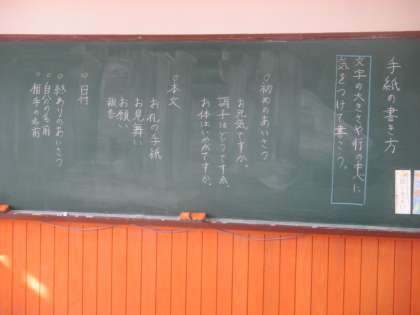 手紙の書き方
文字の大きさや行の中心に
気をつけて書こう。
○初めのあいさつ
お元気ですか。
調子はどうですか。
お体はいかがですか。
○本文
お礼の手紙
お見舞い
お願い
報告
○日付
○終わりのあいさつ
○自分の名前
○相手の名前